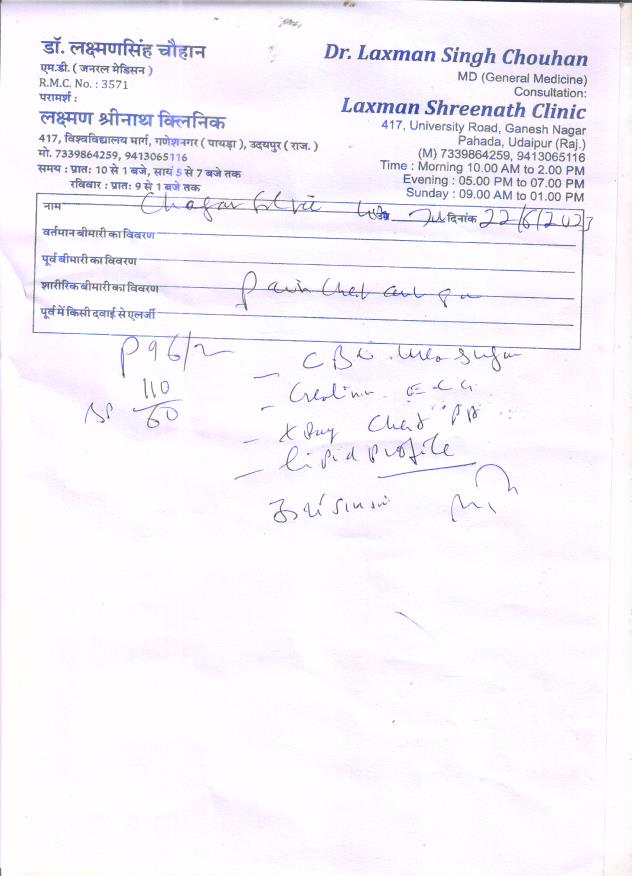 डॉ. लक्ष्मणसिंह चौहान
एम.डी. ( जनरल मेडिसन )
R.M.C. No. : 3571
परामर्श :
लक्ष्मण श्रीनाथ क्लिनिक
417, विश्वविद्यालय मार्ग, गणेशनगर ( पायड़ा ), उदयपुर ( राज. )
मो. 7339864259, 9413065116
समय : प्रातः 10 से 1 बजे, सायं 5 से 7 बजे तक
रविवार : प्रातः 9 से 1 बजे तक
Dr. Laxman Singh Chouhan
MD (General Medicine)
Consultation:
Laxman Shreenath Clinic
417, University Road, Ganesh Nagar
Pahada, Udaipur (Raj.)
(M) 7339864259, 9413065116
Time : Morning 10.00 AM to 2.00 PM
Evening : 05.00 PM to 07.00 PM
Sunday : 09.00 AM to 01.00 PM
नाम दिनांक 22/6/2023
वर्तमान बीमारी का विवरण
पूर्व बीमारी का विवरण
शारीरिक बीमारी का विवरण Pain Chest
पूर्व में किसी दवाई से एलर्जी
P 96/2
BP 110/60
- CBC Urea Sugar
- Creatinine ECG
- X Ray Chest PA
- Lipid Profile